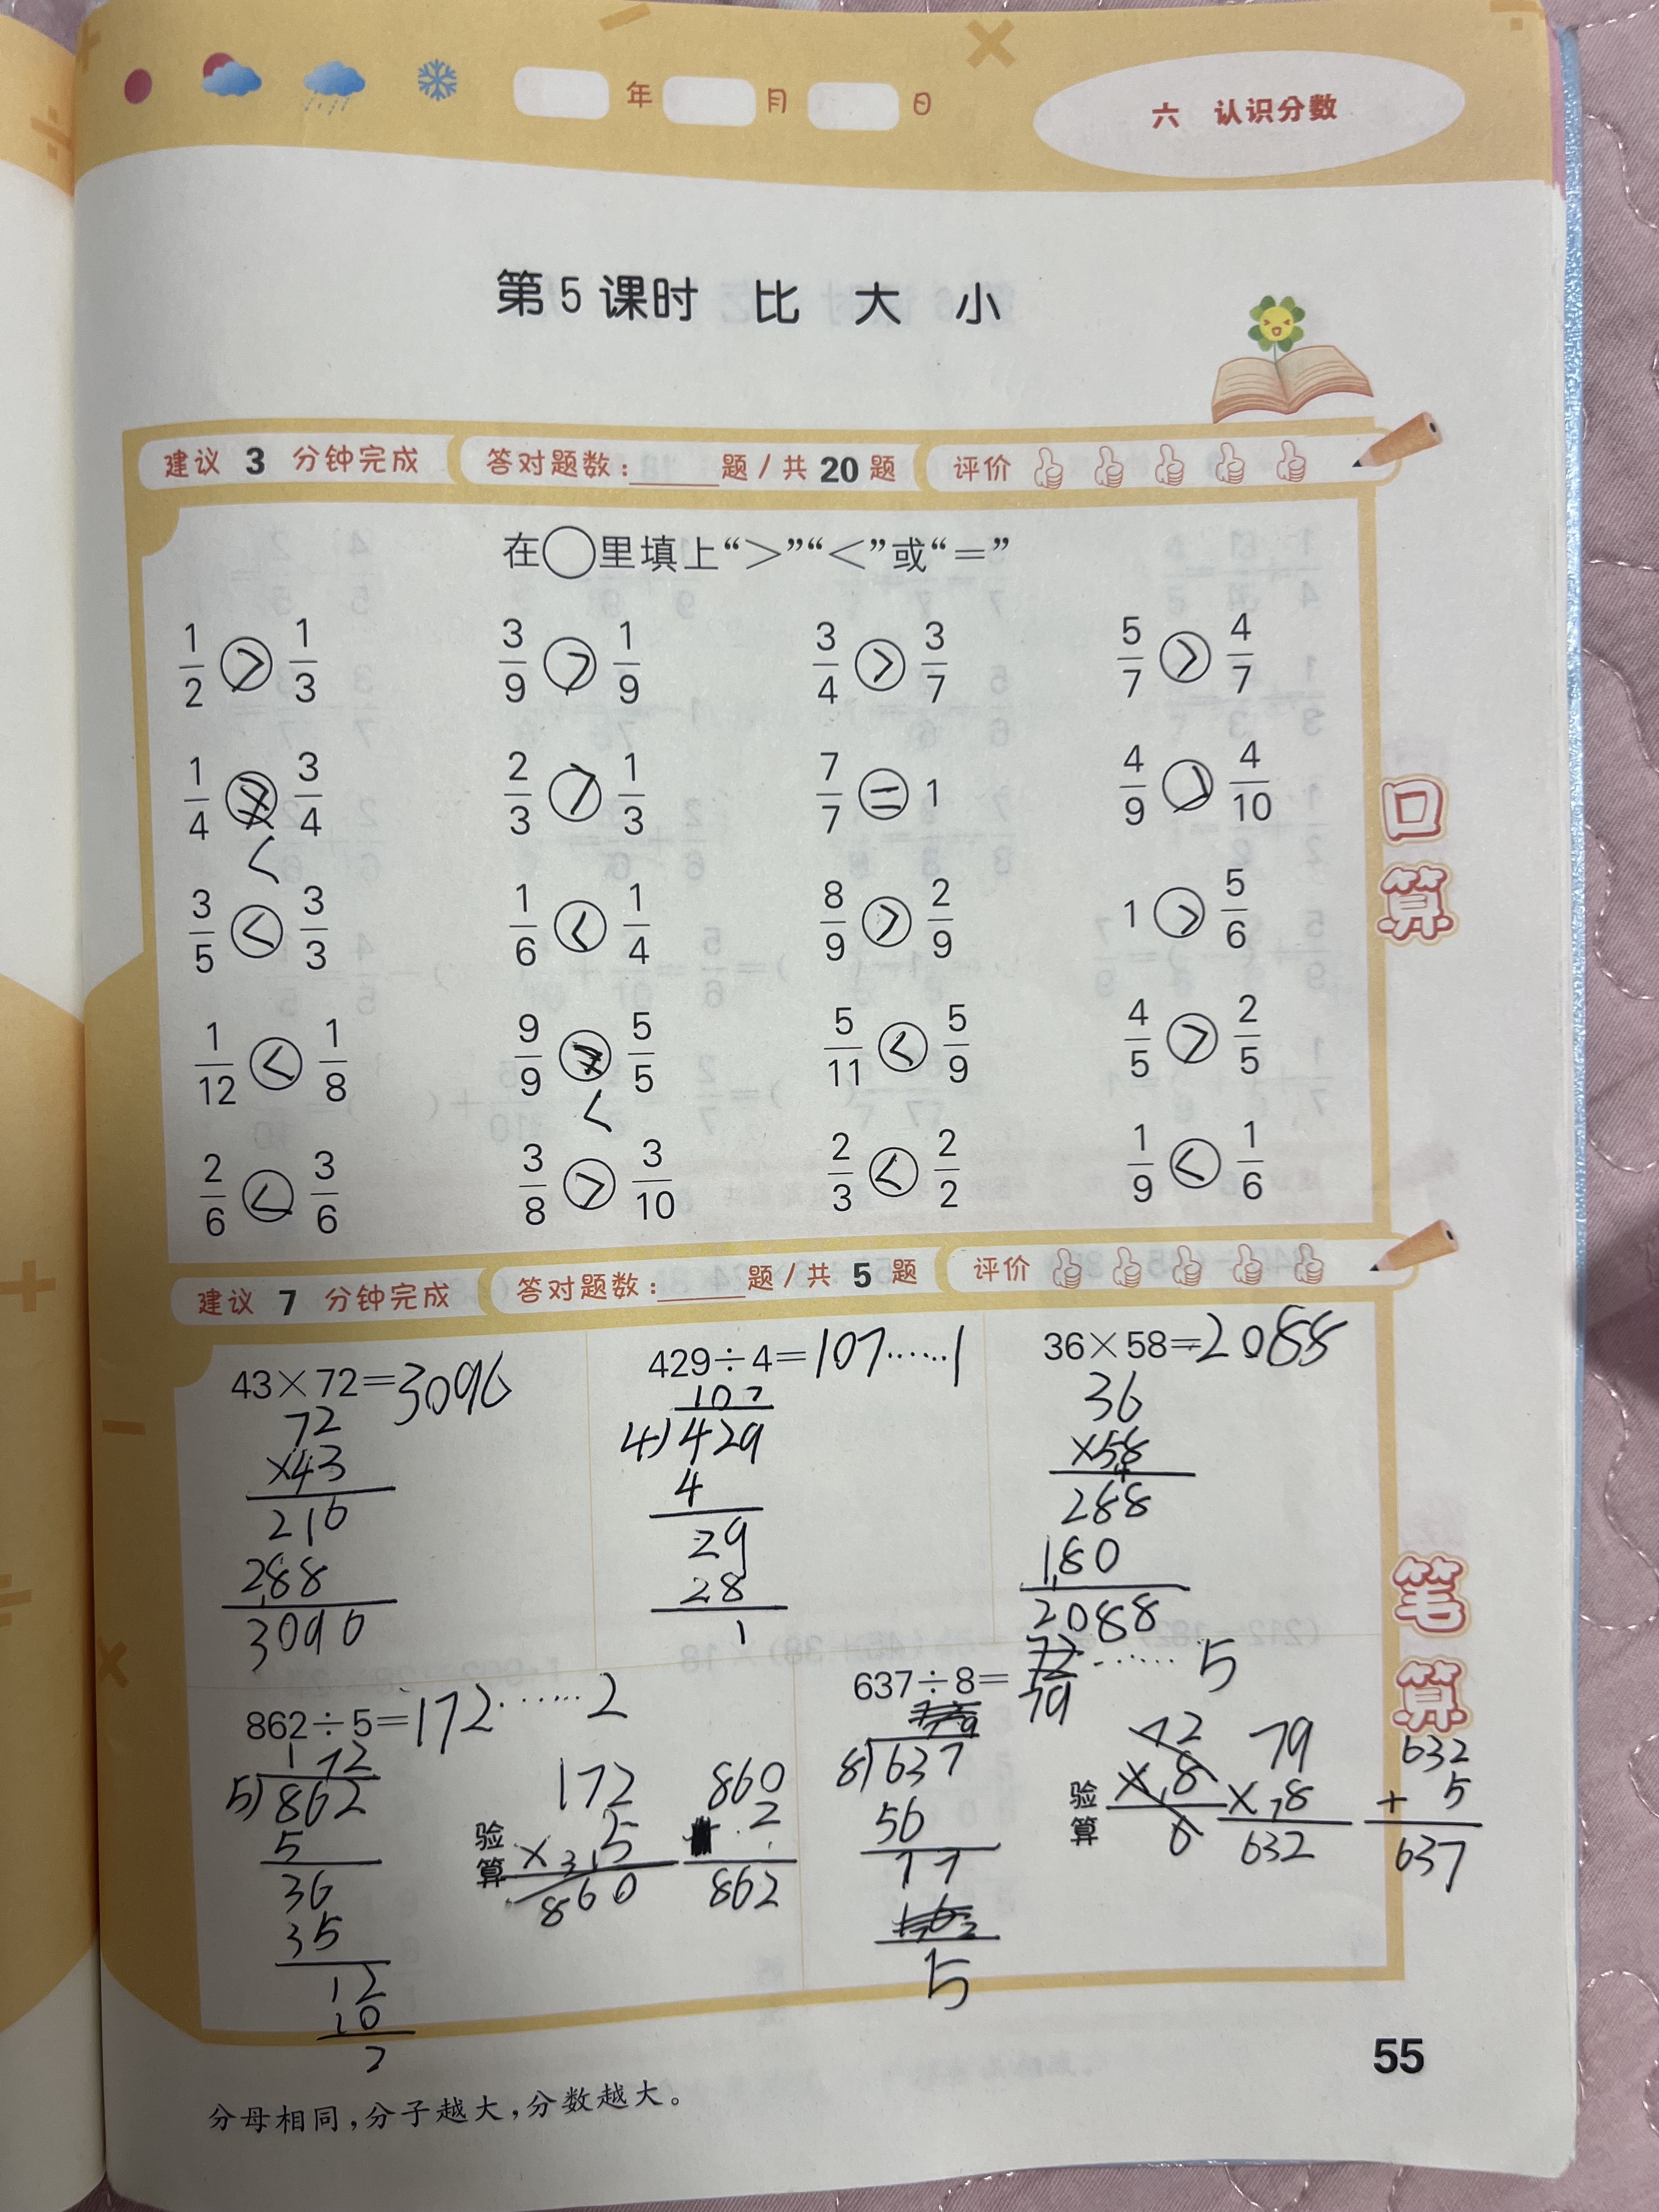 年 月 日
六 认识分数
第5课时 比 大 小
建议 3 分钟完成 答对题数：____题/共20题 评价
在○里填上“>”“<”或“=”
1/2 > 1/3 3/9 > 1/9 3/4 > 3/7 5/7 > 4/7
1/4 < 3/4 2/3 > 1/3 7/7 = 1 4/9 > 4/10
3/5 < 3/3 1/6 < 1/4 8/9 > 2/9 1 > 5/6
1/12 < 1/8 9/9 < 5/5 5/11 < 5/9 4/5 > 2/5
2/6 < 3/6 3/8 > 3/10 2/3 < 2/2 1/9 < 1/6
口算
建议 7 分钟完成 答对题数：____题/共5题 评价
43×72=3096
72
×43
216
288
3096
429÷4=107……1
107
4)429
4
29
28
1
36×58=2088
36
×58
288
180
2088
862÷5=172……2
172
5)862
5
36
35
12
10
2
验算
172
×5
860
860
2
862
637÷8=79……5
79
8)637
56
77
5
验算
72
×8
6
79
×8
632
632
+ 5
637
笔算
55
分母相同，分子越大，分数越大。